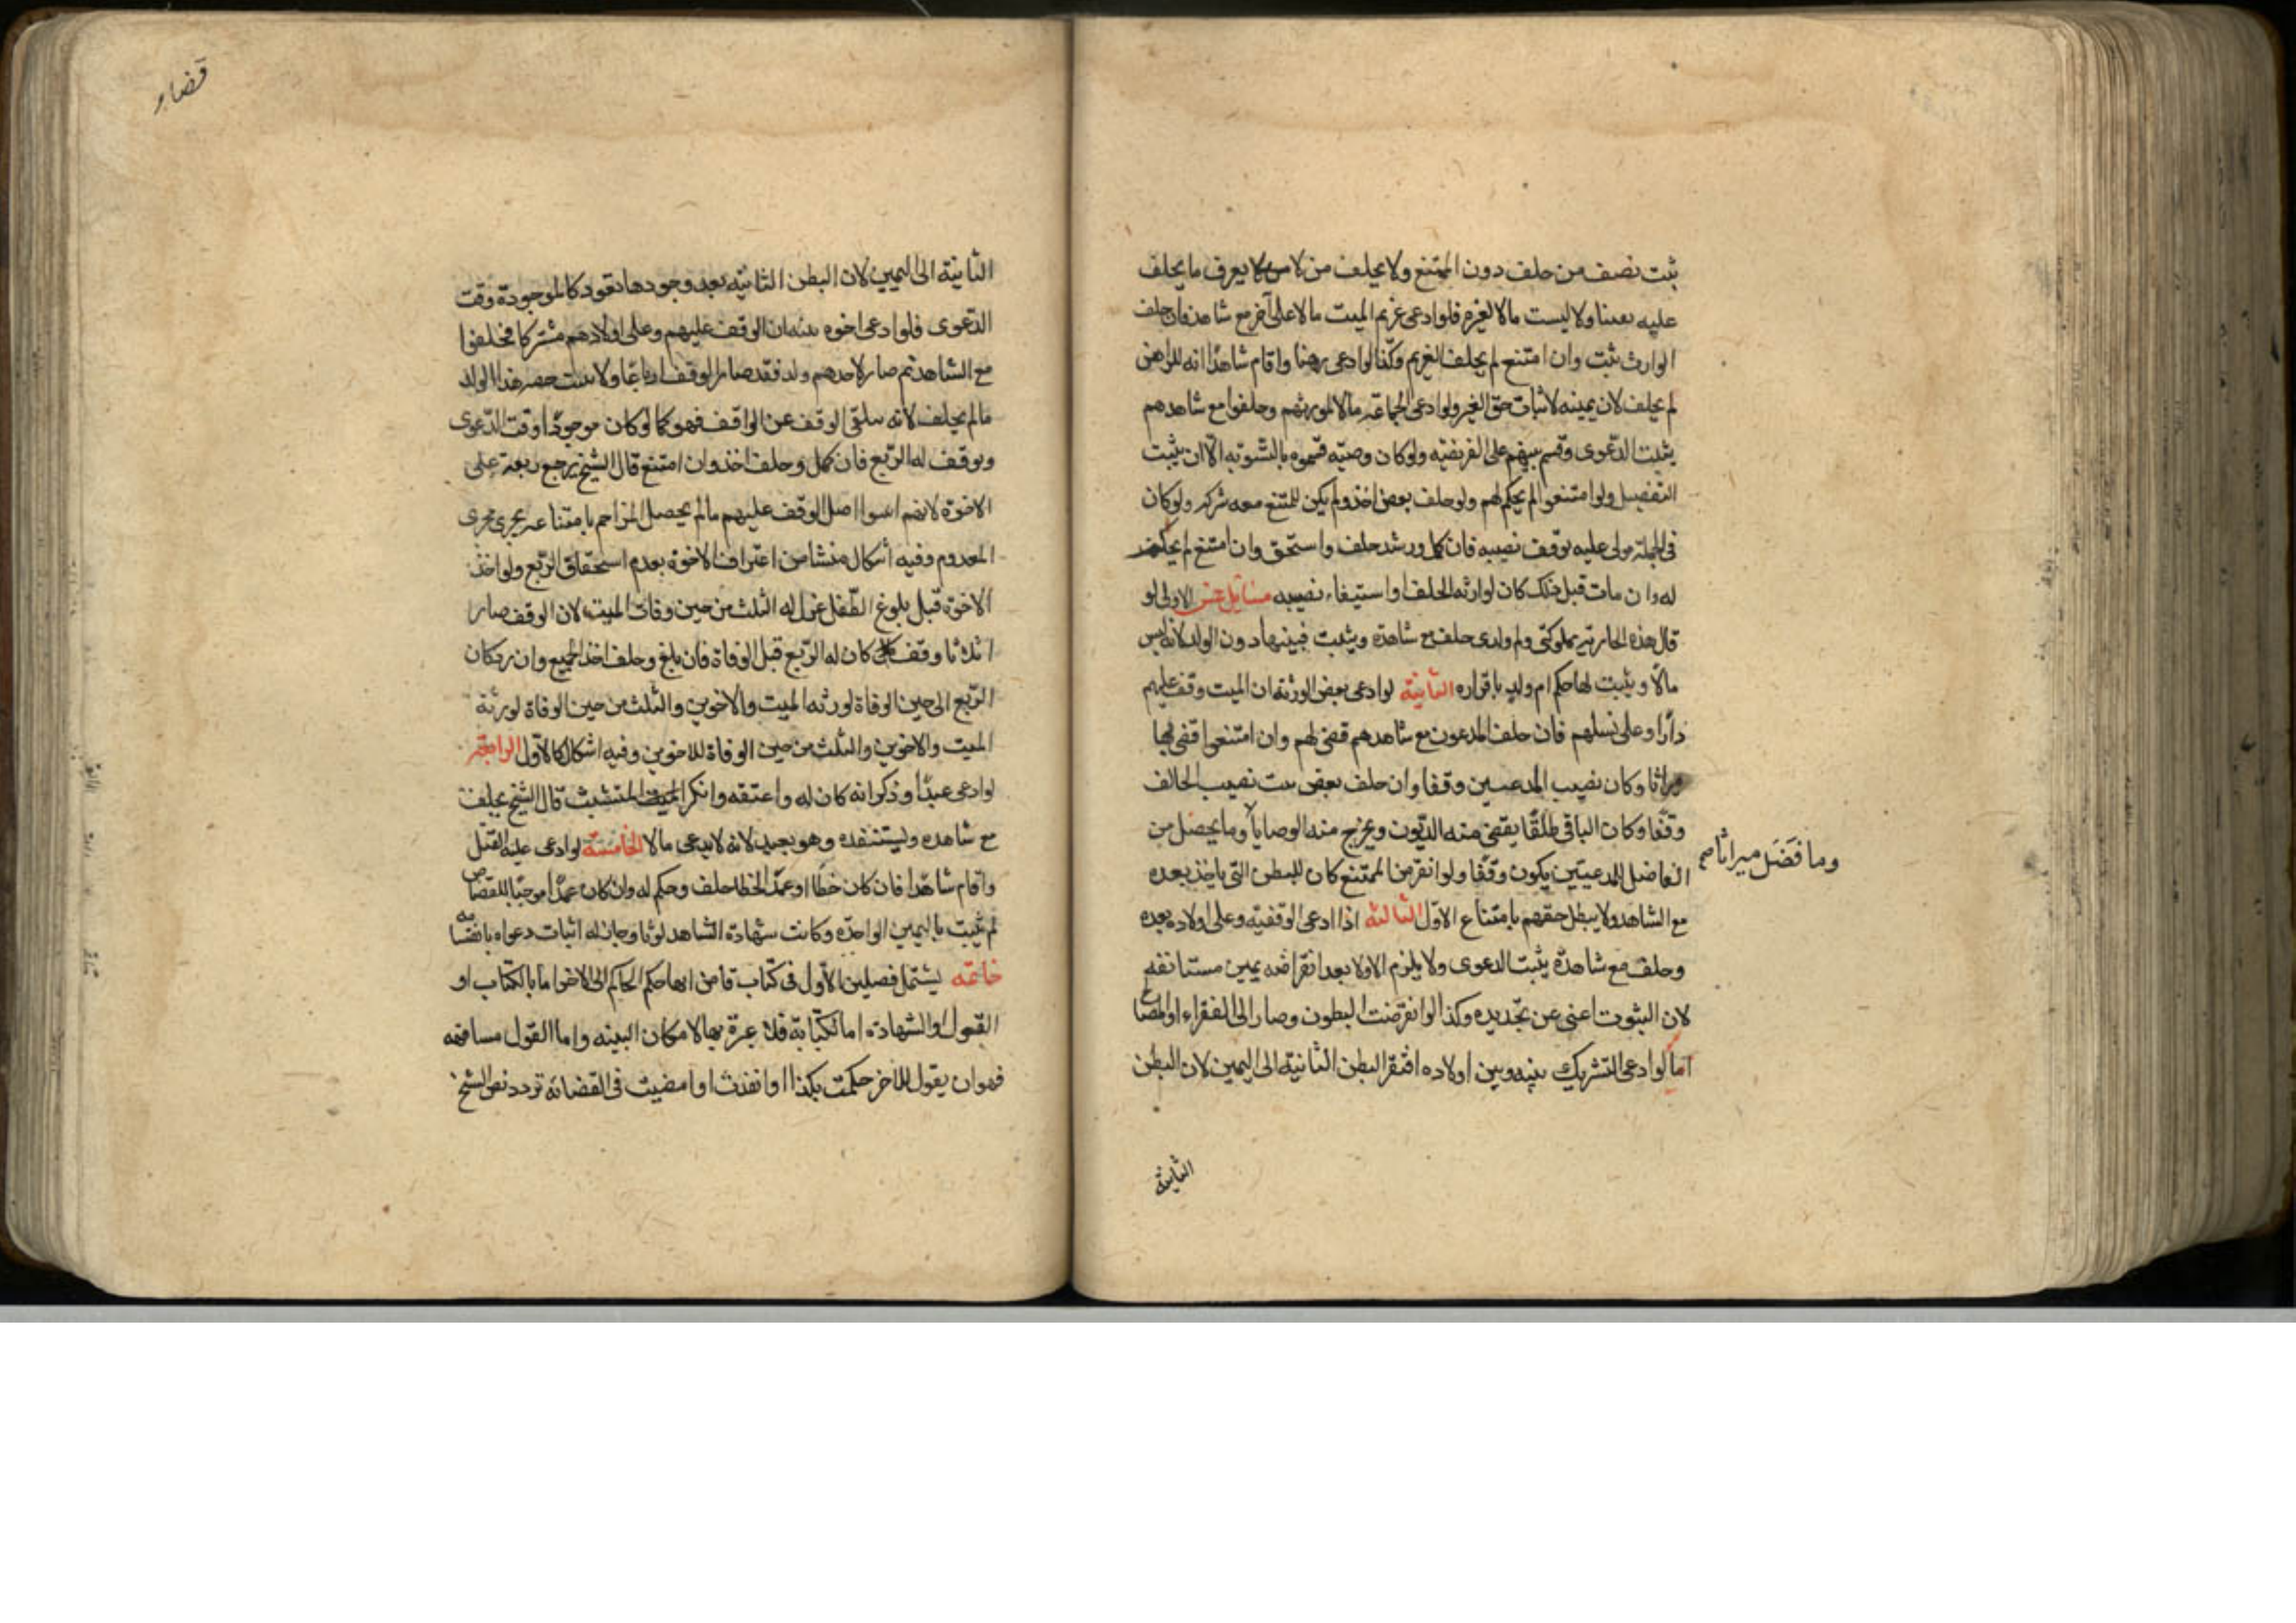 ثبت نصيف من حلف دون الممتنع ولا يحلف من لا يعرف ما يحلف
عليه يقينا ولا ليست مالا لغيره فلو ادعى غريم الميت مالا على آخر مع شاهد فان حلف
الوارث ثبت وان امتنع لم يحلف الغريم وكذا لو ادعى رهنا واقام شاهدا انه للراهن
لم يحلف لان يمينه لاثبات حق الغير ولو ادعى الجماعة مالا لمورثهم وحلفوا مع شاهدهم
يثبت الدعوى وقسم بينهم على الفريضيه ولو كان وصيّه قسموه بالتسويه الا ان يثبت
التفضيل ولو امتنعوا لم يحكم لهم ولو حلف بعض اخذ ولم يكن للممتنع معه شركه ولو كان
فى الجملة مولى عليه توقف نصيبه فان كمل ورشد حلف واستحق وان امتنع لم يحكم
له وان مات قبل ذلك كان لوارثه الحلف واستيفاء نصيبه مسايل خمس الاولى لو
قال هذه الجاريه مملوكتى وام ولدى حلف مع شاهده ويثبت فيتها دون الولد لانه ليس
مالا ويثبت لها حكم ام ولد باقراره الثانية لو ادعى بعض الورثة ان الميت وقف عليهم
دارا وعلى نسلهم فان حلف المدعون مع شاهدهم قضى لهم وان امتنعوا قضى لها
ميراثا وكان نصيب المدعيين وقفا وان حلف بعض ثبت نصيب الحالف
وقفا وكان الباقى طلقا يقضى منه الديون ويخرج منه الوصايا وما يحصل من
وما فضل ميراثا صح
الفاضل للمدعيين يكون وقفا ولو انقرض الممتنع كان للبطن التى ياخذ بعده
مع الشاهد ولا يبطل حقهم بامتناع الاول الثالثة اذا ادعى الوقفيه وعلى اولاده بعده
وحلف مع شاهده يثبت الدعوى ولا يلزم الاولاد بعد انقراضه يمين مستانفه
لان الثبوت اغنى عن تجديده وكذا لو انقرضت البطون وصار الى الفقراء او المصالح
اما لو ادعى التشريك بينه وبين اولاده افتقر البطن الثانية الى اليمين لان البطن
الثانية
قضاء
الثانية الى اليمين لان البطن الثانيه بعد وجودها تعود كالموجودة وقت
الدعوى فلو ادعى اخوه ثلثه ان الوقف عليهم وعلى اولادهم مشتركا فحلفوا
مع الشاهد ثم صار لاحدهم ولد فقد صار الوقف ارباعا ولا يثبت حصه هذا الولد
مالم يحلف لانه يتلقى الوقف عن الواقف فهو كما لو كان موجودا وقت الدعوى
ويوقف له الربع فان كمل وحلف اخذ وان امتنع قال الشيخ يرجع ربعه على
الاخوة لانهم اثبتوا اصل الوقف عليهم مالم يحصل المزاحم بامتناعه يجرى مجرى
المعدوم وفيه اشكال منشا من اعتراف الاخوة بعدم استحقاق الربع ولو اخذ
الاخوة قبل بلوغ الطفل عزل له الثلث من حين وفات الميت لان الوقف صار
اثلاثا وقف كان له الربع قبل الوفاة فان بلغ وحلف اخذ الجميع وان رد كان
الربع الى حين الوفاة لورثه الميت والاخوين والثلث من حين الوفاة لورثة
الميت والاخوين والثلث من حين الوفاة للاخوين وفيه اشكال كالاول الرابعة
لو ادعى عبدا وذكر انه كان له واعتقه وانكر المتشبث قال الشيخ يحلف
مع شاهده وليستنقذه وهو بعيد لانه لا يدعى مالا الخامسة لو ادعى عليه القتل
واقام شاهدا فان كان خطا او عمد الخطا حلف وحكم له وان كان عمدا موجبا للقصاص
لم يثبت باليمين الواحده وكانت شهادة الشاهد لوثا وجاز له اثبات دعواه بالقسامه
خاتمه يشتمل فصلين الاول فى كتاب قاض انهاء حكم الحاكم الى الاخر اما بالكتاب او
القول او الشهادة اما الكتابة فلا عبرة بها لامكان البينه واما القول مسافهه
فهو ان يقول للآخر حكمت بكذا او انفذت او امضيت فى القضائه تردد نص الشيخ